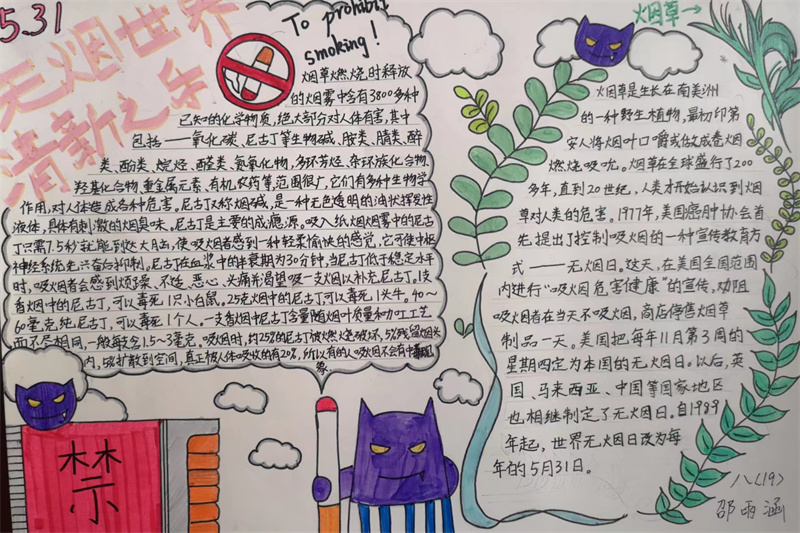 5.31
无烟世界
清新之乐
To prohibit
smoking!
烟草燃烧时释放
的烟雾中含有3800多种
已知的化学物质,绝大部分对人体有害,其中
包括一一氧化碳、尼古丁等生物碱、胺类、腈类、醇
类、酚类、烷烃、醛类、氮氧化物、多环芳烃、杂环族化合物、
羟基化合物、重金属元素、有机农药等,范围很广,它们有多种生物学
作用,对人体造成各种危害。尼古丁又称烟碱,是一种无色透明的油状挥发性
液体,具有刺激的烟臭味。尼古丁是主要的成瘾源。吸入纸烟烟雾中的尼古
丁只需7.5秒就能到达大脑,使吸烟者感到一种轻柔愉快的感觉,它可使中枢
神经系统先兴奋后抑制。尼古丁在血浆中的半衰期为30分钟,当尼古丁低于稳定水平
时,吸烟者会感到烦躁、不适、恶心、头痛并渴望吸一支烟以补充尼古丁。1支
香烟中的尼古丁,可以毒死1只小白鼠。25克烟中的尼古丁可以毒死1头牛。40~
60毫克纯尼古丁,可以毒死1个人。一支香烟中尼古丁含量随烟叶质量和加工工艺
而不尽相同,一般每支含1.5~3毫克。吸烟时,约25%的尼古丁被燃烧破坏,5%残留烟头
内,50%扩散到空间,真正被人体吸收的有20%,所以有的人吸烟不会有中毒现
象
禁
烟草
烟草是生长在南美洲
的一种野生植物,最初印第
安人将烟叶口嚼或做成卷烟
燃烧吸吮。烟草在全球盛行了200
多年,直到20世纪,人类才开始认识到烟
草对人类的危害。1977年,美国癌肿协会首
先提出了控制吸烟的一种宣传教育方
式——无烟日。这天,在美国全国范围
内进行“吸烟危害健康”的宣传,劝阻
吸烟者在当天不吸烟,商店停售烟草
制品一天。美国把每年11月第3周的
星期四定为本国的无烟日。以后,英
国、马来西亚、中国等国家地区
也相继制定了无烟日。自1989
年起,世界无烟日改为每
年的5月31日。
八(19)
邵雨涵